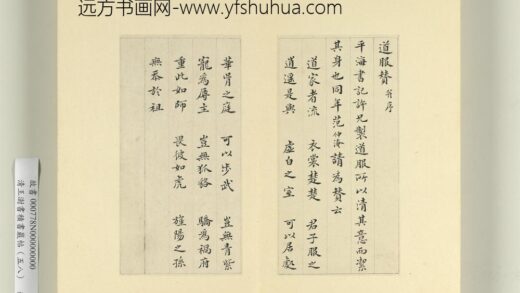 远方书画网-www.yfshuhua.com
道服贊 并序
平海書記許兄製道服所以清其意而潔
其身也同年范仲淹請為贊云
道家者流 衣裳楚楚 君子服之
逍遙是與 虛白之室 可以居處
華胥之庭 可以步武 豈無青紫
寵為辱主 豈無狐貉 驕為禍府
重此如師 畏彼如虎 旌陽之孫
無忝於祖
故書 000778N00000000
清王澍書積書巖帖（五八）